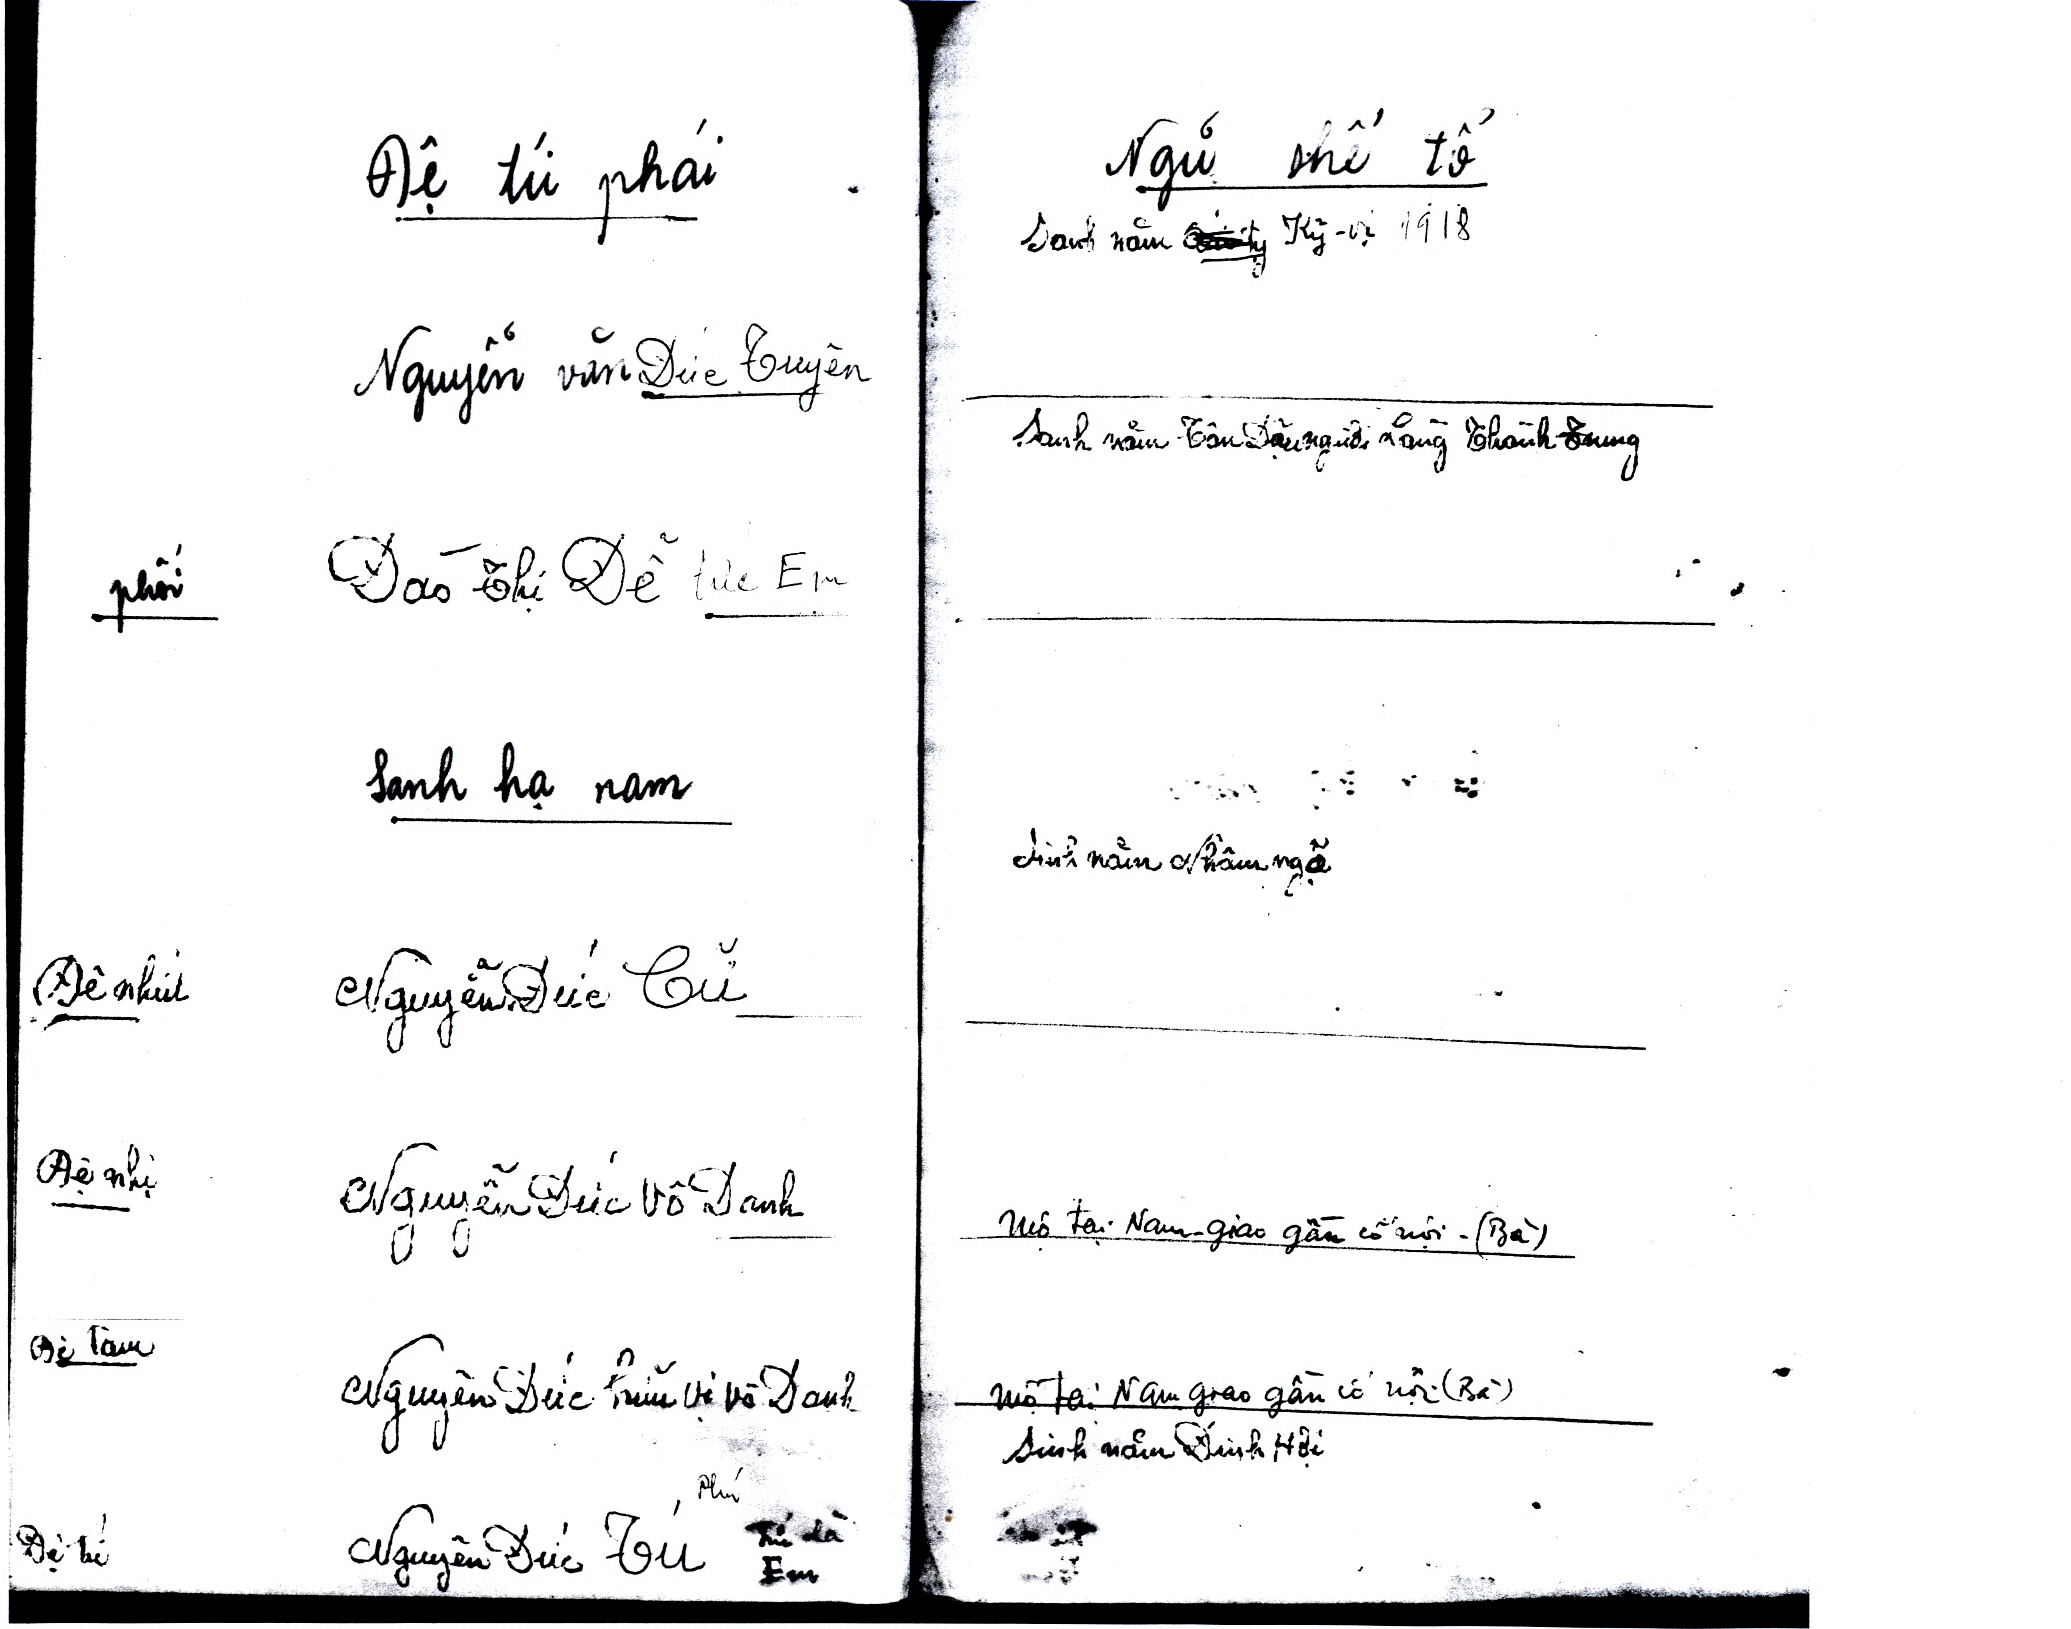 Đệ tứ phái
Nguyễn văn Đức Tuyên
phối Đào Thị Dễ tức Em
Sanh hạ nam
Đệ nhứt Nguyễn Đức Cữ
Đệ nhị Nguyễn Đức Vô Danh
Đệ Tam Nguyễn Đức hữu vị vô Danh
Phú
Đệ tứ Nguyễn Đức Tú Tú là
Em
Ngũ thế tổ
Sanh năm Kỹ-vị 1918
Sanh năm Tân Dậu người Làng Thành Trung
Sinh năm Nhâm ngọ
Mộ tại Nam-giao gần cố nội - (Bà)
Mộ tại Nam giao gần cố nội (Bà)
Sinh năm Đinh Hợi